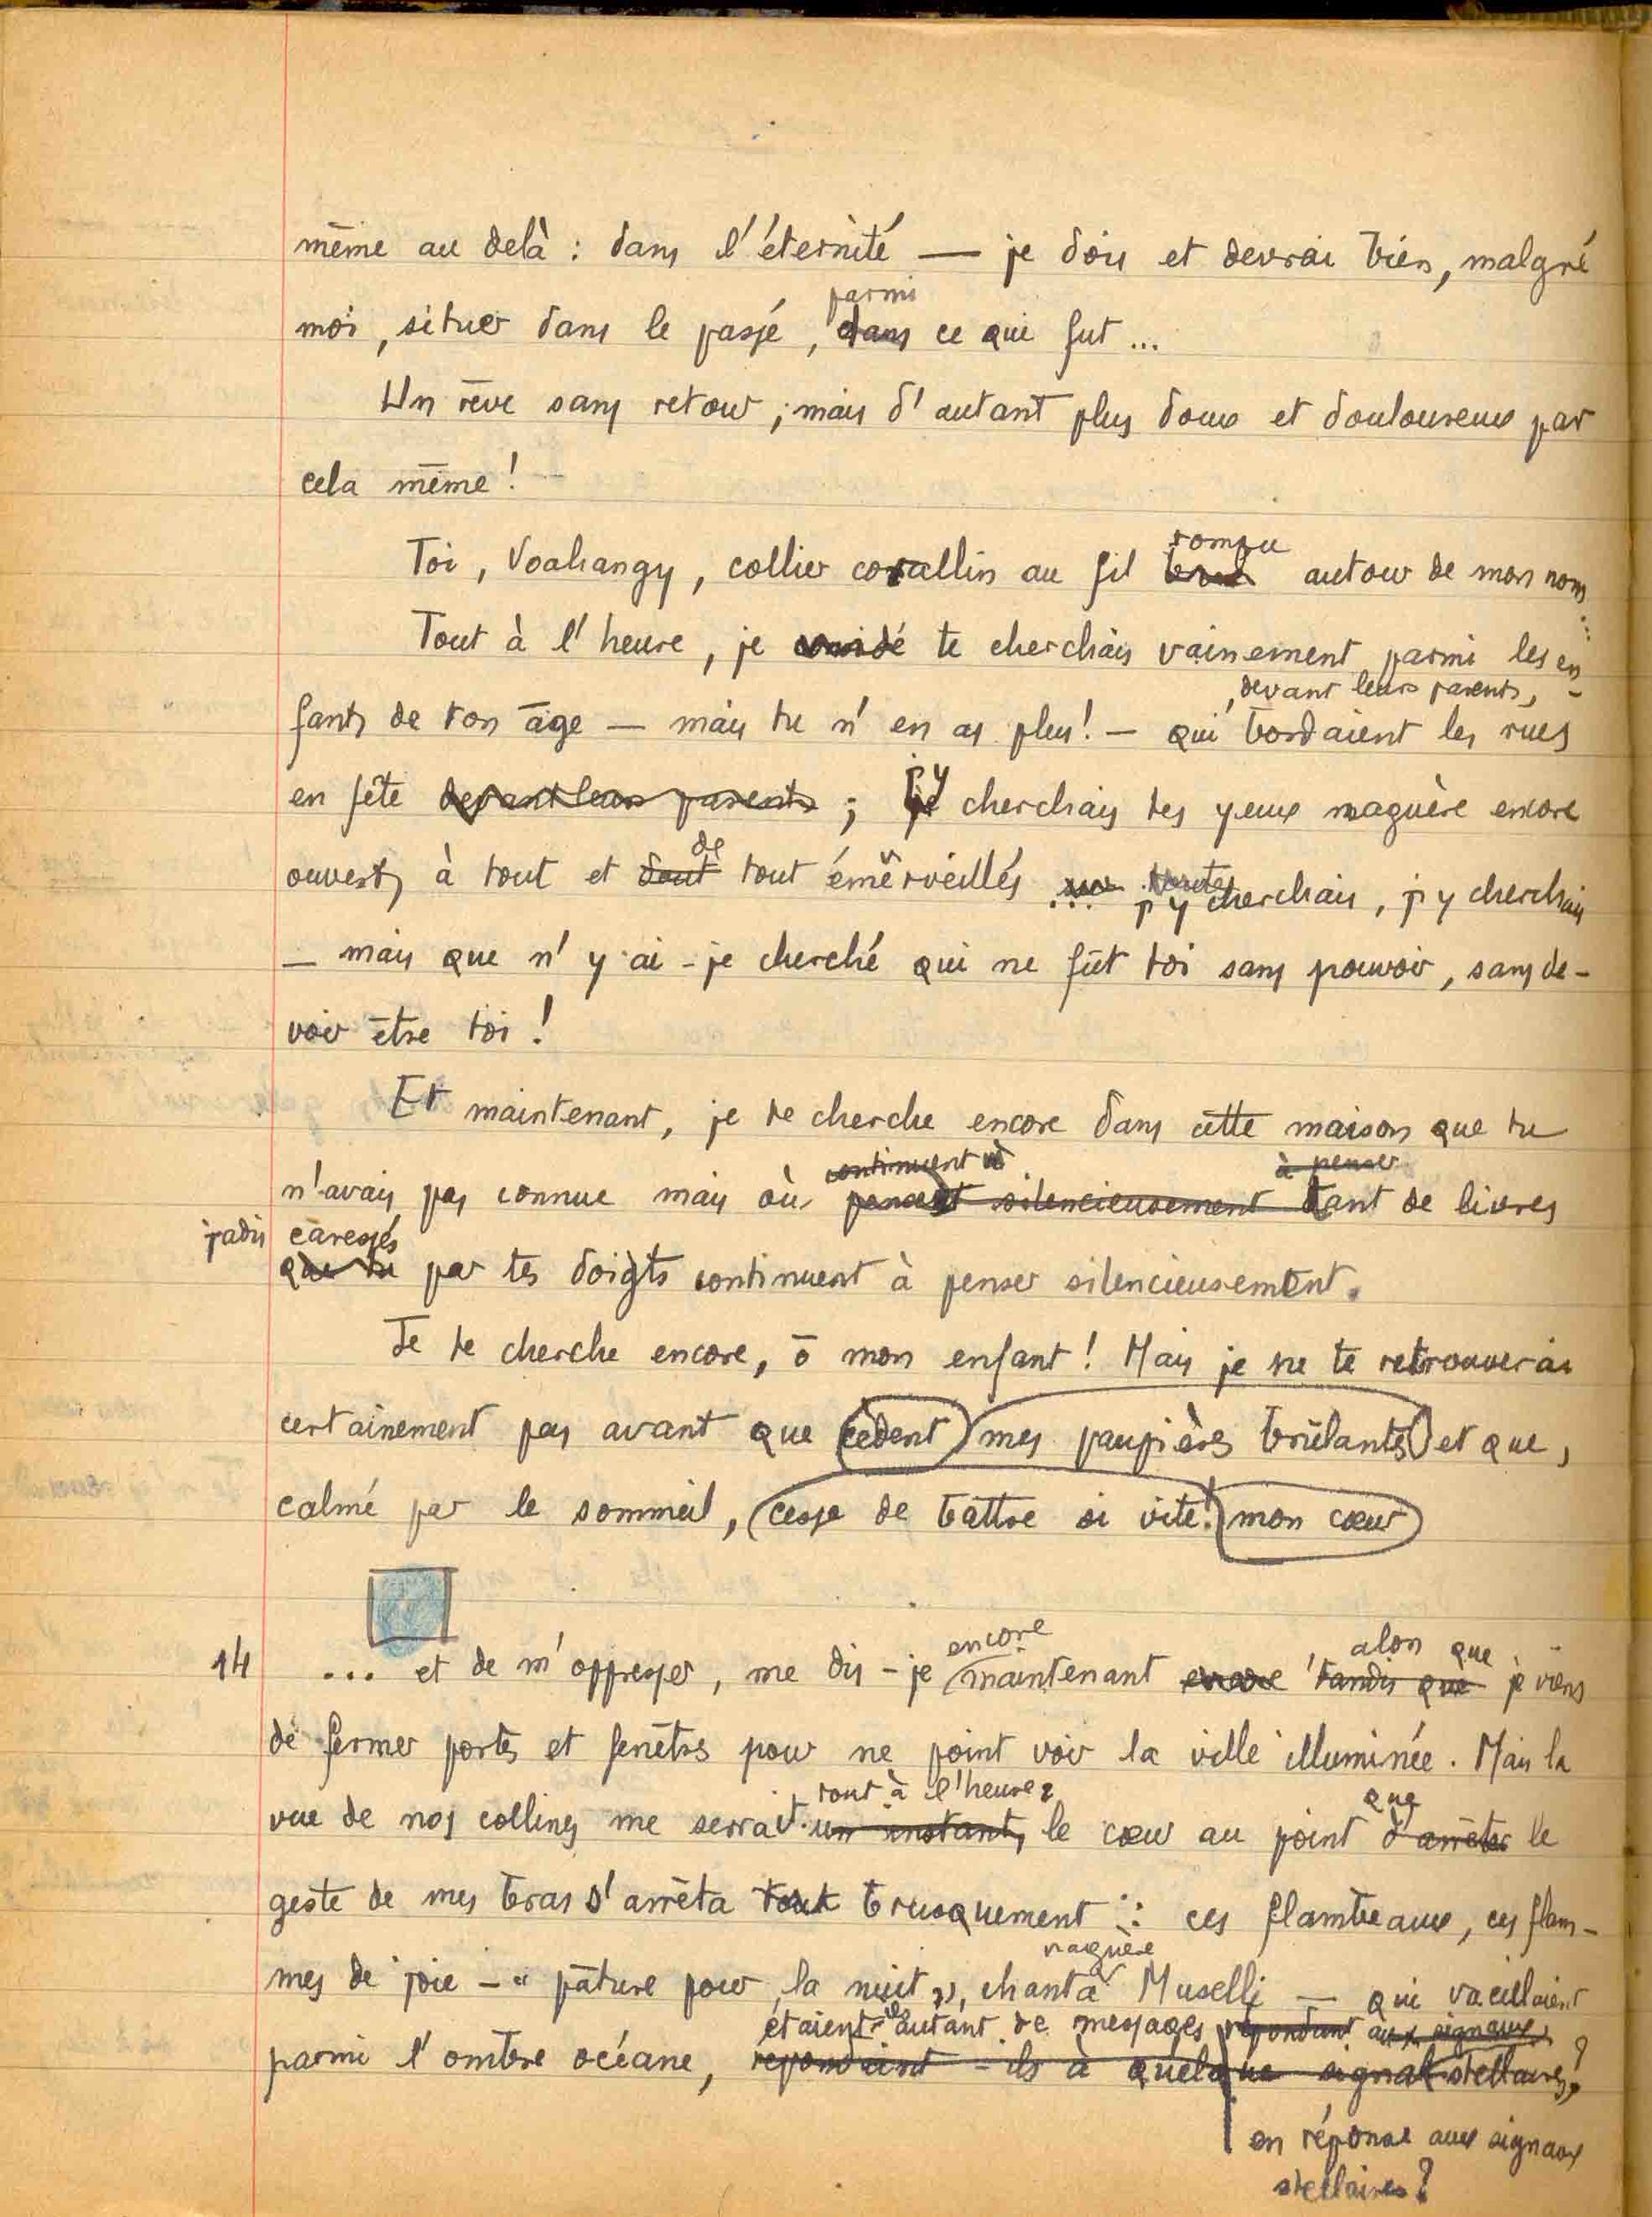 même au delà : dans l'éternité — je dois et devrai bien, malgré
parmi
moi, situer dans le passé, dans ce qui fut ...
Un rêve sans retour, mais d'autant plus doux et douloureux par
cela même !
rompu
Toi, Voahangy, collier corallin au fil autour de mon nom...
Tout à l'heure, je te cherchais vainement parmi les en-
, devant leurs parents,
fants de ton âge — mais tu n'en as plus ! — qui bordaient les rues
j'y
en fête devant leurs parents ; je cherchais tes yeux naguère encore
de
ouverts à tout et dont tout émerveillés ... j'y cherchais, j'y cherchais
— mais que n'y ai-je cherché qui ne fût toi sans pouvoir, sans de-
voir être toi !
Et maintenant, je te cherche encore dans cette maison que tu
continuent à à penser
n'avais pas connue mais où pensent silencieusement tant de livres
jadis caressés
que tu par tes doigts continuent à penser silencieusement.
Je te cherche encore, ô mon enfant ! Mais je ne te retrouverai
certainement pas avant que cèdent mes paupières brûlantes et que,
calmé par le sommeil, cesse de battre si vite ! mon cœur
encore alors que
14 ... et de m'oppresser, me dis-je maintenant encore, tandis que je viens
de fermer portes et fenêtres pour ne point voir la ville illuminée. Mais la
tout à l'heure que
vue de nos collines me serrait un instant, le cœur au point d'arrêter le
geste de mes bras s'arrêta tout brusquement : ces flambeaux, ces flam-
naguère
mes de joie — « pâture pour la nuit », chanta Muselli — qui vacillaient
étaient-ils autant de messages répondant aux signaux
parmi l'ombre océane, répondaient-ils à quelque signal stellaires ?
en réponse aux signaux
stellaires ?